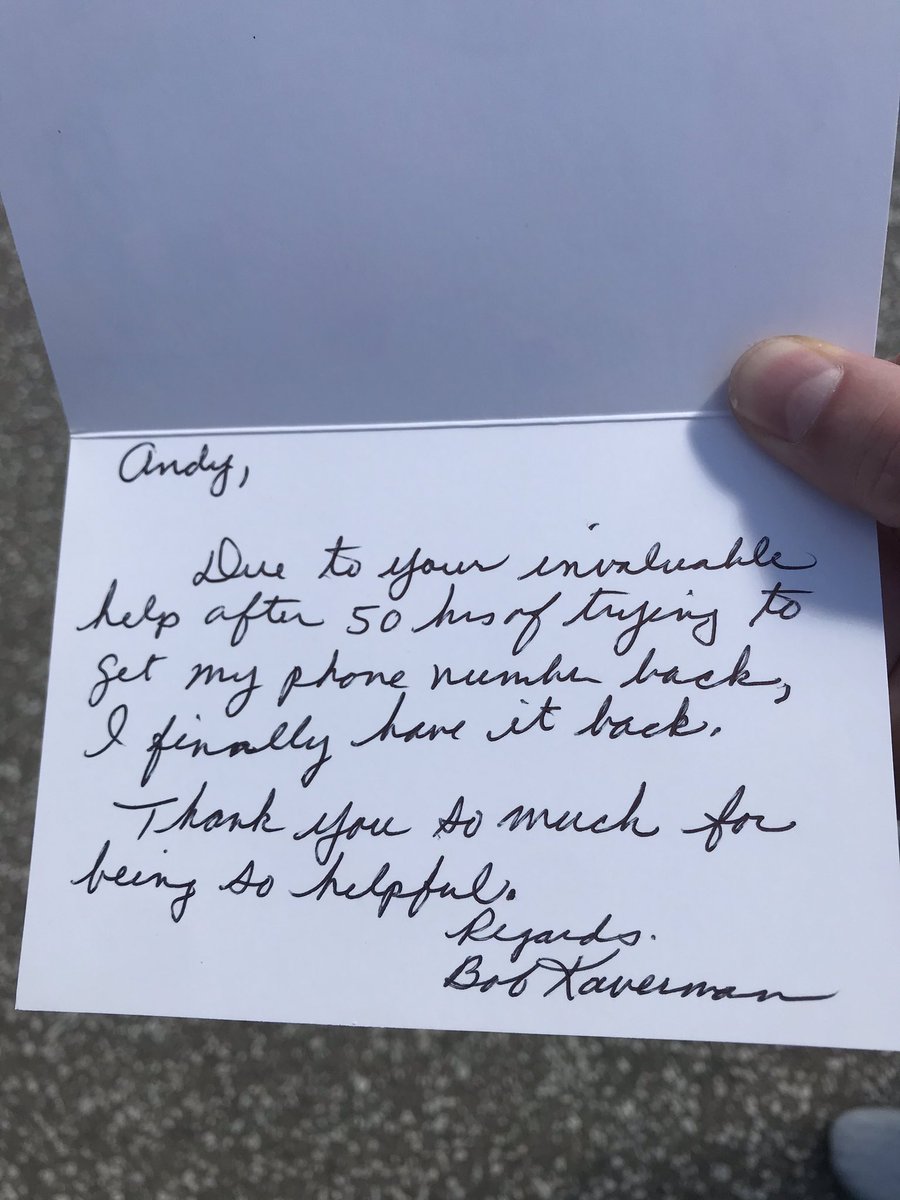 Andy,
Due to your invaluable
help after 50 hrs of trying to
get my phone number back,
I finally have it back.
Thank you so much for
being so helpful.
Regards.
Bob Kaverman